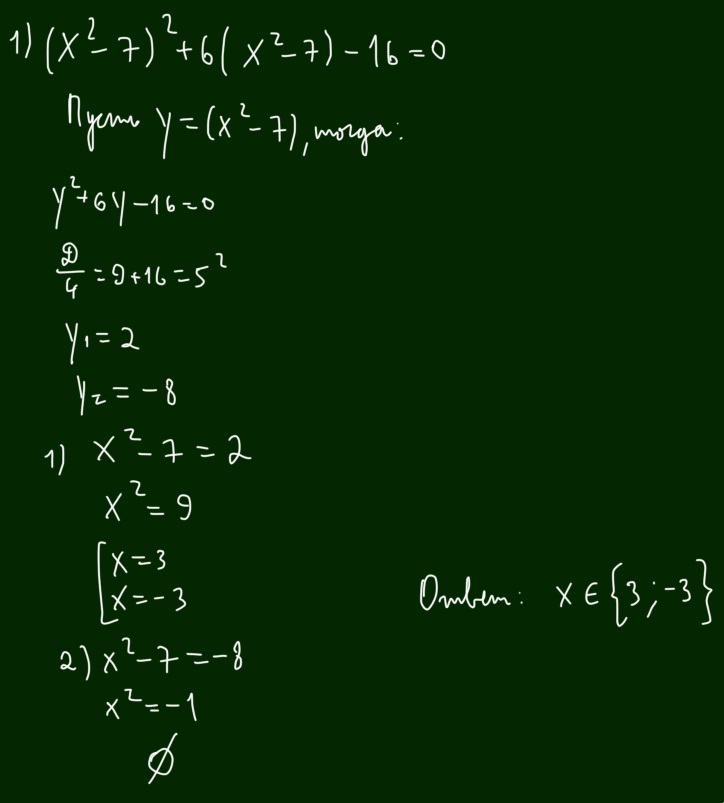 1) (x²-7)²+6(x²-7)-16=0
Пусть y=(x²-7), тогда:
y²+6y-16=0
D/4=9+16=5²
y₁=2
y₂=-8
1) x²-7=2
x²=9
[x=3
x=-3
Ответ: x∈{3;-3}
2) x²-7=-8
x²=-1
∅